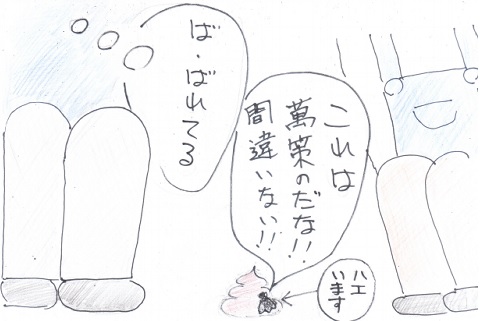 これは
萬策のだな!!
間違いない!!
ば・ばれてる
ハエ
います